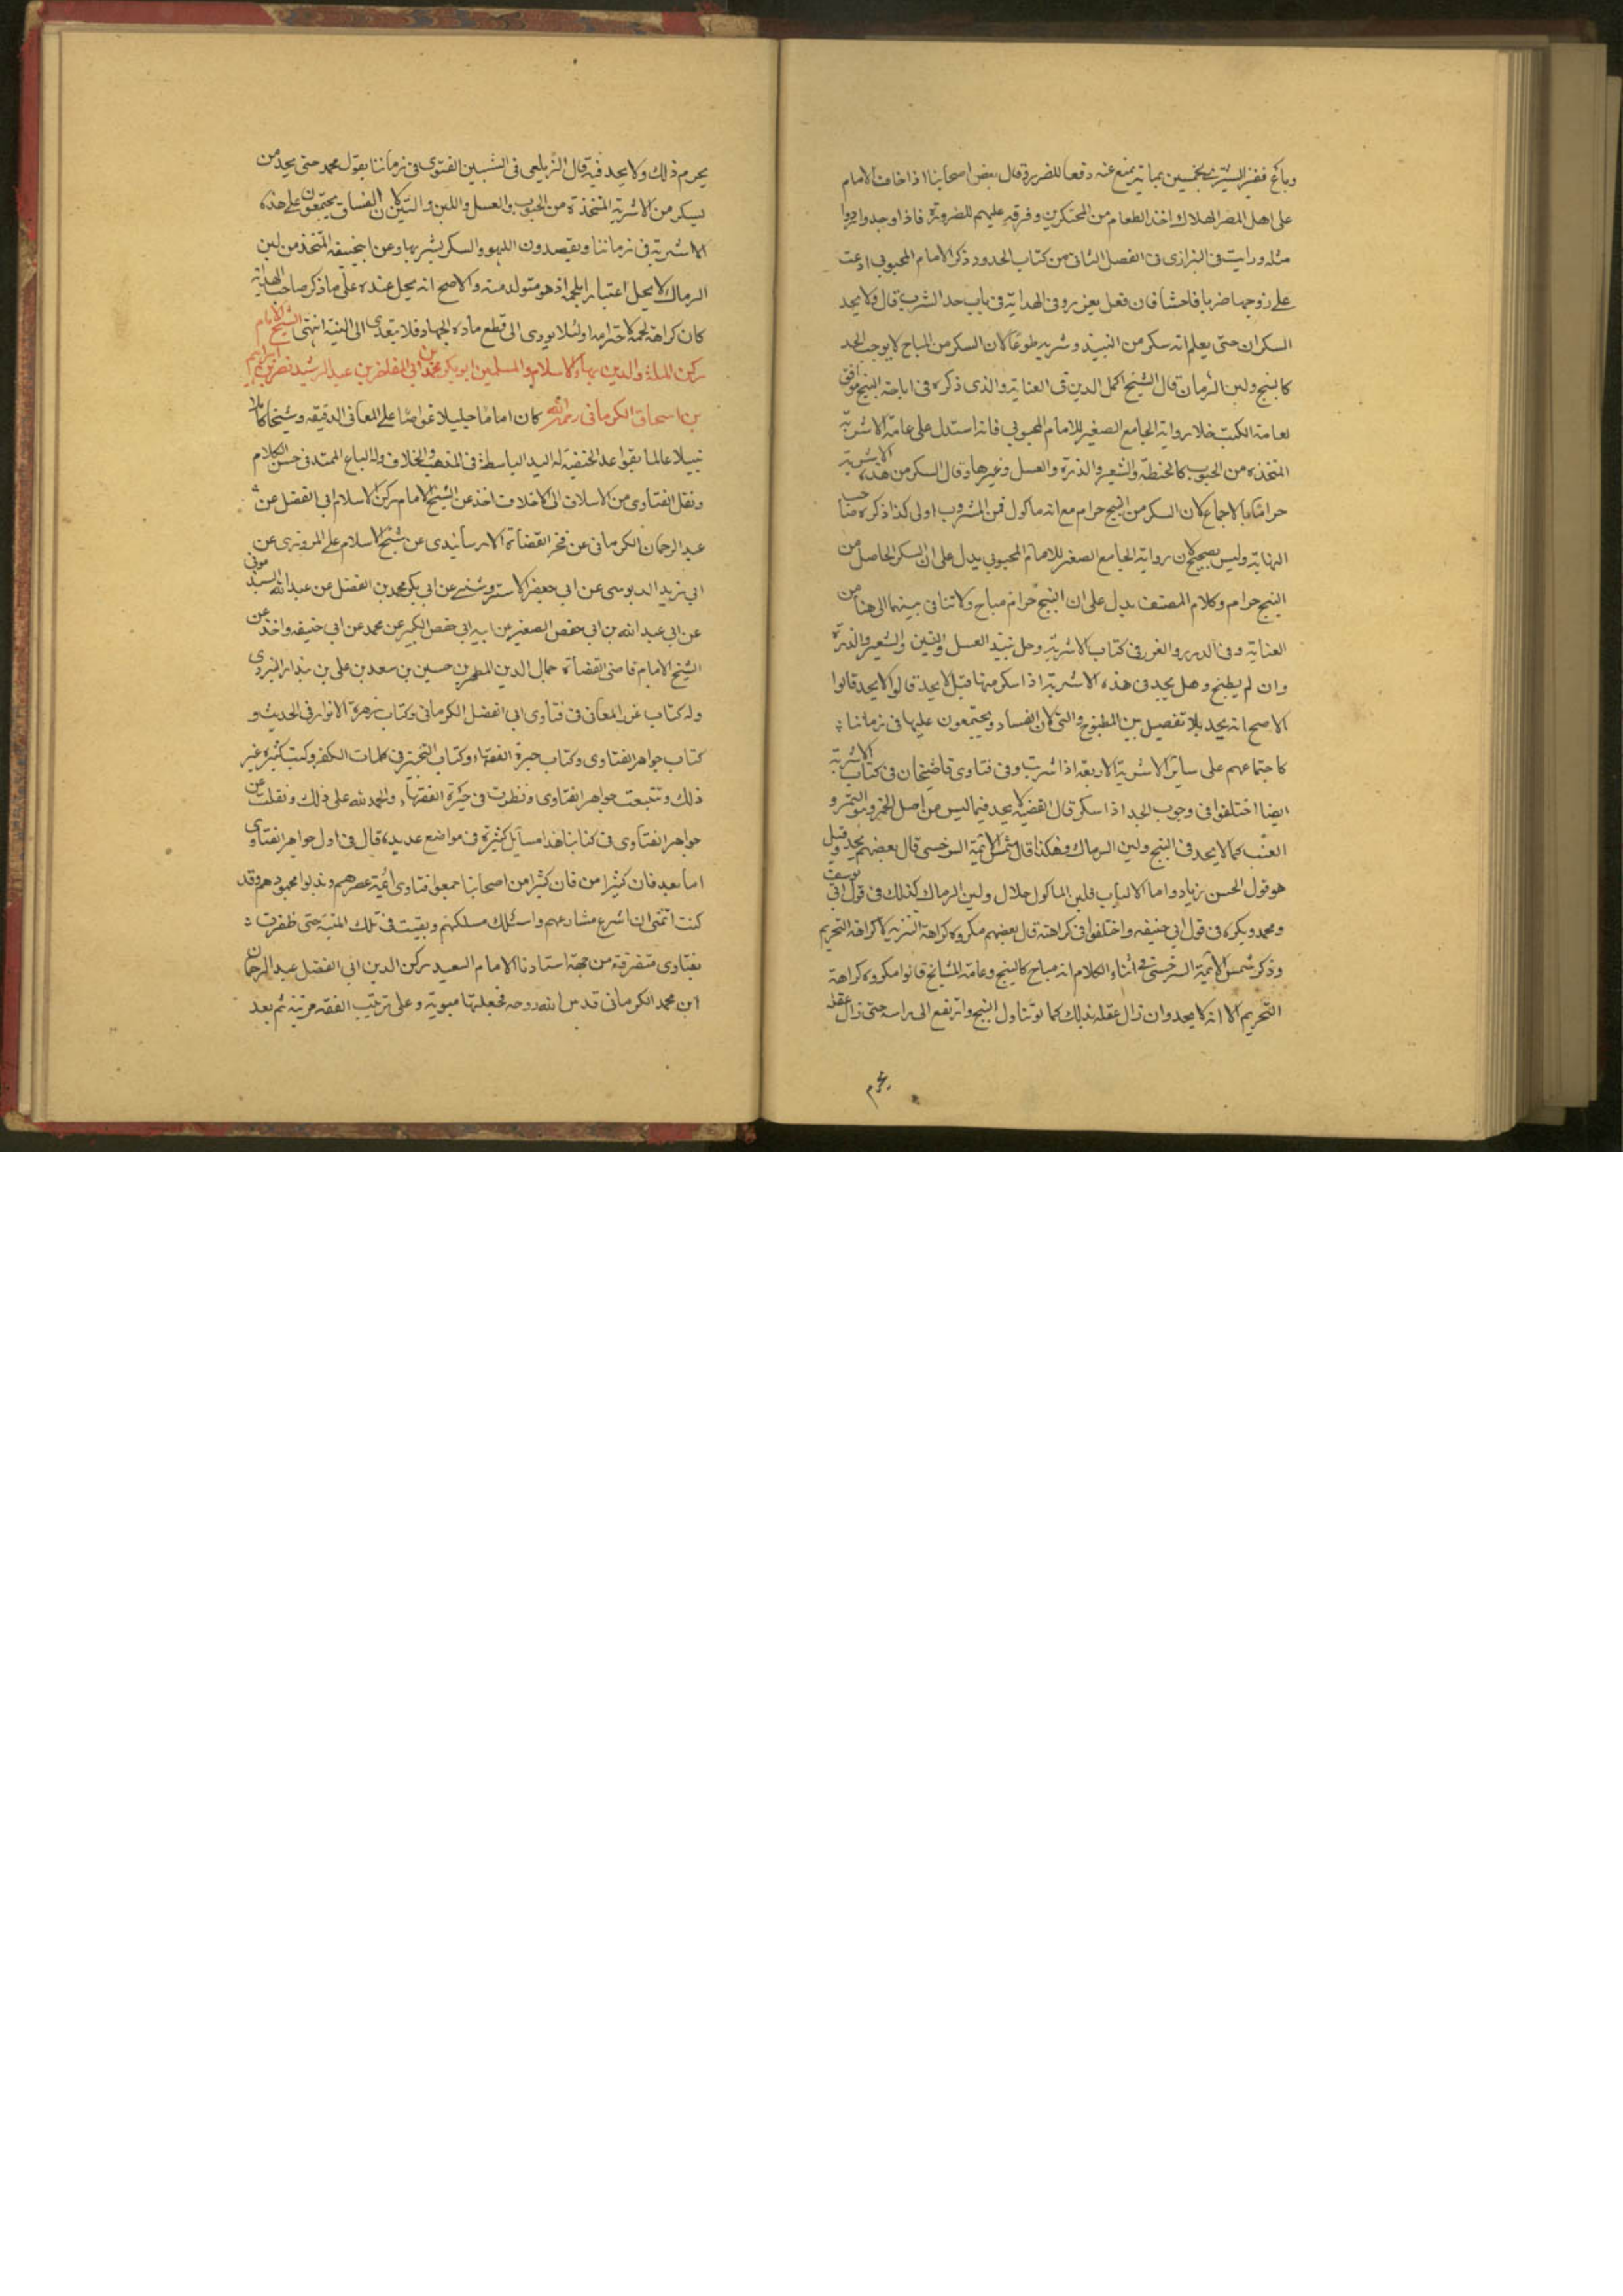 وبائع قفيز البر بخمسين بماية يمنع عنه دفعا للضرر وقال بعض اصحابنا اذا خاف الامام
على اهل المصر الهلاك اخذ الطعام من المحتكرين وفرقه عليهم للضرورة فاذا وجدوا ردوا
مثله ورايت فى البزازى فى الفصل الثانى من كتاب الحدود ذكر الامام المحبوبى ادعت
على زوجها ضربا فاحشا فان فعل يعزر وفى الهداية فى باب حد الشرب قال ولا يحد
السكران حتى يعلم انه سكر من النبيذ وشربه طوعا لان السكر من المباح لا يوجب الحد
كالبنج ولبن الرماك قال الشيخ اكمل الدين فى العناية والذى ذكره فى اباحة البنج موافق
لعامة الكتب خلا رواية الجامع الصغير للامام المحبوبى فانه استدل على عامة الاشربة
المتخذة من الحبوب كالحنطة والشعير والذرة والعسل وغيرها وقال السكر من هذه الاشربة
حرام بالاجماع لان السكر من البنج حرام مع انه ماكول فمن المشروب اولى كذا ذكره صاحب
النهاية وليس بصحيح لان رواية الجامع الصغير للامام المحبوبى يدل على ان السكر الحاصل من
البنج حرام وكلام المصنف يدل على ان البنج مباح ولا تنافى بينهما الى هنا من
العناية وفى الدرر والغرر فى كتاب الاشربة وحل نبيذ العسل والتين والشعير والذرة
وان لم يطبخ وهل يحد فى هذه الاشربة اذا سكر منها قيل لا يحد قالوا
الاصح انه يحد بلا تفصيل بين المطبوخ والنى لان الفساد ويجتمعون عليها فى زماننا
كاجتماعهم على ساير الاشربة الاربعة اذا شربت وفى فتاوى قاضيخان فى كتاب الاشربة
ايضا اختلفوا فى وجوب الحد اذا سكر قال الفقيه لا يحد فيما ليس من اصل الخمر وهو التمر و
العنب كما لا يحد فى البنج ولبن الرماك وهكذا قال شمس الائمة السرخسى قال بعضهم يحد وقيل
هو قول الحسن بن زياد واما الالبان فلبن الماكول حلال ولبن الرماك كذلك فى قول ابى يوسف
ومحمد ويكره فى قول ابى حنيفه واختلفوا فى كراهته قال بعضهم مكروه كراهة التنزيه لا كراهة التحريم
وذكر شمس الائمة السرخسى فى اثناء الكلام انه مباح كالبنج وعامة المشايخ قالوا مكروه كراهة
التحريم الا انه لا يحد وان زال عقله بذلك كما لو تناول البنج وارتفع الى راسه حتى زال عقله
يحرم
يحرم ذلك ولا يحد فيه قال الزيلعى فى التبيين الفتوى فى زماننا بقول محمد حتى يحد من
يسكر من الاشربة المتخذة من الحبوب والعسل واللبن والتين لان الفساق يجتمعون على هذه
الاشربة فى زماننا ويقصدون اللهو والسكر بشربها وعن ابيحنيفه المتخذ من لبن
الرماك لا يحل اعتبارا بلحمه اذ هو متولد منه والاصح انه يحل عنده على ما ذكر صاحب الهداية
كان كراهة لحمه لاحترامه او لئلا يودى الى قطع مادة الجهاد فلا يتعدى الى البنية انتهى الشيخ الامام
ركن الملة والدين بهاء الاسلام والمسلمين ابو بكر محمد بن ابى المفاخر بن عبد الرشيد نصر بن ابراهيم
بن اسحاق الكرمانى رحمه الله كان اماما جليلا غواصا على المعانى الدقيقه وشيخا كاملا
نبيلا عالما بقواعد الحنيفه له اليد الباسطة فى المذهب والخلاف وله الباع الممتد فى حسن الكلام
ونقل الفتاوى من الاسلاف الى الاخلاف اخذ عن الشيخ الامام ركن الاسلام ابى الفضل عن
عبد الرحمان الكرمانى عن فخر القضاة الارسابندى عن شيخ الاسلام على المروزى عن
ابى زيد الدبوسى عن ابى جعفر الاستروشنى عن ابى بكر محمد بن الفضل عن عبد الله السبذمونى
عن ابى عبد الله بن ابى حفص الصغير عن ابيه ابى حفص الكبير عن محمد عن ابى حنيفه واخذ عن
الشيخ الامام قاضى القضاة جمال الدين المطهر بن حسين بن سعد بن على بن بندار اليزدى
وله كتاب غرر المعانى فى فتاوى ابى الفضل الكرمانى وكتاب زهرة الانوار فى الحديث و
كتاب جواهر الفتاوى وكتاب حيرة الفقهاء وكتاب التحيز فى كلمات الكفر وكتب كثيره غير
ذلك وتتبعت جواهر الفتاوى ونظرت فى حيرة الفقهاء والحمد لله على ذلك ونقلت عن
جواهر الفتاوى فى كتابنا هذا مسائل كثيرة فى مواضع عديده قال فى اول جواهر الفتاوى
اما بعد فان كثيرا من فان كثيرا من اصحابنا جمعوا فتاوى ائمة عصرهم وبذلوا مجهودهم وقد
كنت اتمنى ان اشرع مشارعهم واسلك مسلكهم وبقيت فى تلك المنية حتى ظفرت
بفتاوى متفرقة من جهة استادنا الامام السعيد ركن الدين ابى الفضل عبد الرحمان
ابن محمد الكرمانى قدس الله روحه فجعلتها مبوبة وعلى ترتيب الفقه مرتبة ثم بعد